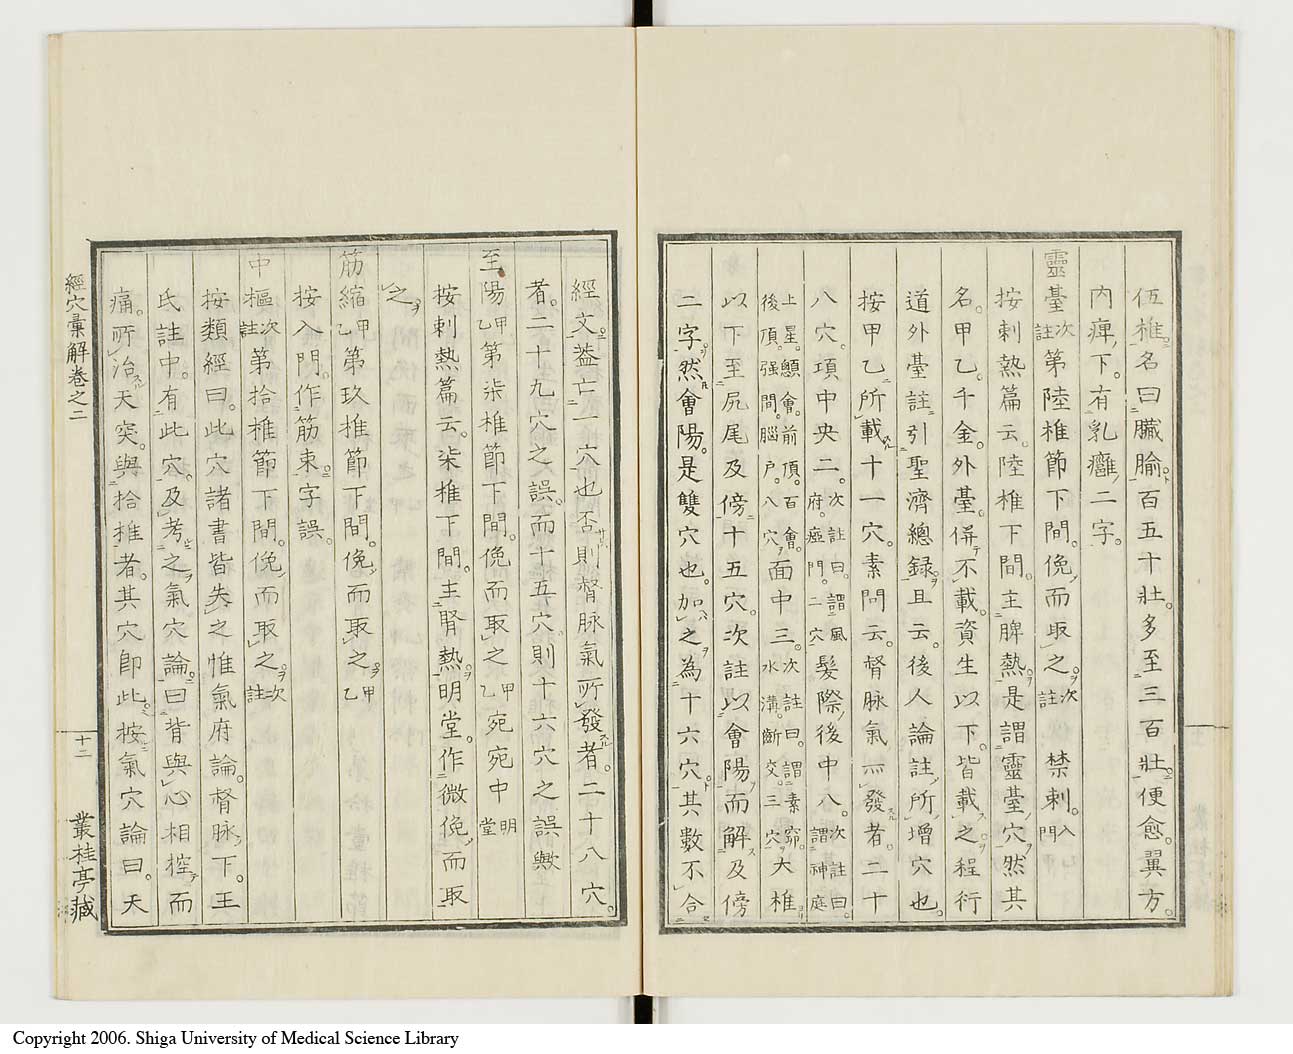 伍椎名曰臟腧百五十壯。多至三百壯。便愈。翼方。
內痺下。有乳癰二字。
靈臺次註第陸椎節下間。俛而取之。次註 禁刺。入門
按刺熱篇云。陸椎下間。主脾熱。是謂靈臺穴然其
名。甲乙。千金。外臺。併不載。資生以下。皆載之程行
道外臺註引聖濟總錄。且云。後人論註所增穴也。
按甲乙所載十一穴。素問云。督脉氣所發者。二十
八穴。項中央二。次註曰。謂風府。瘂門。二穴髮際後中八。次註曰。謂神庭
上星。顖會。前頂。百會。後頂。强間。腦戶。八穴面中三。次註曰。謂素窌。水溝。斷交。三穴大椎
以下至尻尾及傍十五穴。次註以會陽而解及傍
二字。然會陽。是雙穴也。加之為十六穴。其數不合
經文。葢亡一穴也否則督脉氣所發者。二十八穴。
者。二十九穴之誤。而十五穴。則十六穴之誤歟
至陽甲乙第柒椎節下間。俛而取之甲乙宛宛中明堂
按刺熱篇云。柒椎下間。主腎熱。明堂。作微俛而取
之。
筋縮甲乙第玖椎節下間。俛而取之。甲乙
按入門。作筋束。字誤。
中樞次註第拾椎節下間。俛而取之。次註
按類經曰。此穴諸書皆失之惟氣府論。督脉下。王
氏註中。有此穴。及考之氣穴論。曰背與心相控而
痛。所治天突。與拾椎者。其穴卽此。按氣穴論曰。天
經穴彙解卷之二
十二
叢桂亭藏
Copyright 2006. Shiga University of Medical Science Library